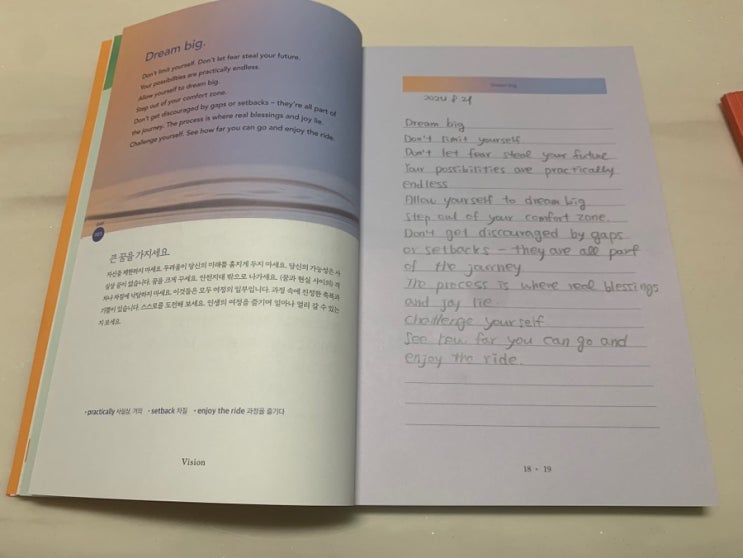 Dream big.
Don't limit yourself. Don't let fear steal your future.
Your possibilities are practically endless.
Allow yourself to dream big.
Step out of your comfort zone.
Don't get discouraged by gaps or setbacks – they're all part of
the journey. The process is where real blessings and joy lie.
Challenge yourself. See how far you can go and enjoy the ride.
큰 꿈을 가지세요.
자신을 제한하지 마세요. 두려움이 당신의 미래를 훔치게 두지 마세요. 당신의 가능성은 사
실상 끝이 없습니다. 꿈을 크게 꾸세요. 안전지대 밖으로 나가세요. (꿈과 현실 사이의) 격
차나 좌절에 낙담하지 마세요. 이것들은 모두 여정의 일부입니다. 과정 속에 진정한 축복과
기쁨이 있습니다. 스스로를 도전해 보세요. 인생의 여정을 즐기며 얼마나 멀리 갈 수 있는
지 보세요.
• practically 사실상, 거의 • setback 차질 • enjoy the ride 과정을 즐기다
Vision
Dream big
Dream big
Don't limit yourself
Don't let fear steal your future
Your possibilities are practically
endless
Allow yourself to dream big
Step out of your comfort zone.
Don't get discouraged by gaps
or setbacks – they are all part
of the journey
The process is where real blessings
and joy lie.
Challenge yourself
See how far you can go and
enjoy the ride.
18 • 19